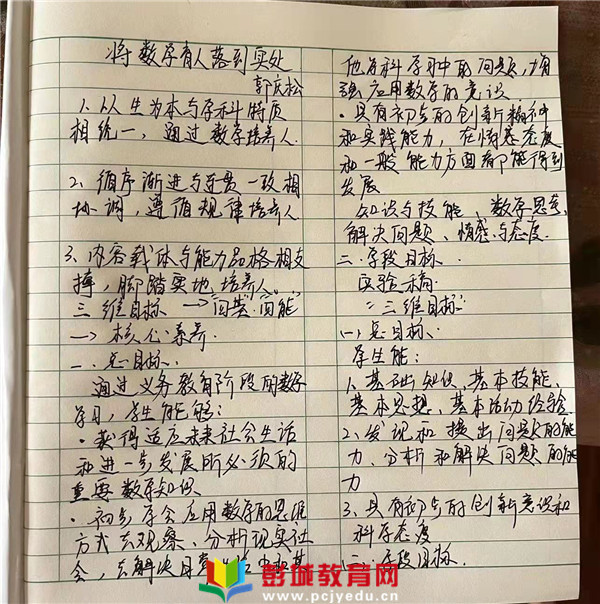 将数学育人落到实处
郭庆松
1. 以生为本与学科特质
相统一，通过数学培养人.
2、循序渐进与连贯一致相
协调，遵循规律培养人
3、内容载体与能力品格相支
撑，脚踏实地培养人.
三维目标 → "四基"四能
→ 核心素养
一. 总目标.
通过义务教育阶段的数学
学习，学生能够：
·获得适应未来社会生活
和进一步发展所必须的
重要数学知识
·初步学会应用数学的思维
方式去观察、分析现实社
会，去解决日常生活中和其
他学科学习中的问题，增
强应用数学的意识
·具有初步的创新精神
和实践能力，在情感态度
和一般能力方面都能得到
发展
知识与技能、数学思考、
解决问题、情感与态度.
二. 学段目标.
实验稿
三维目标
(一) 总目标.
学生能：
1、基础知识、基本技能、
基本思想、基本活动经验
2、发现和提出问题的能
力、分析和解决问题的能
力
3、具有初步的创新意识和
科学态度
(二) 学段目标.
彭城教育网
www.pcjyedu.cn